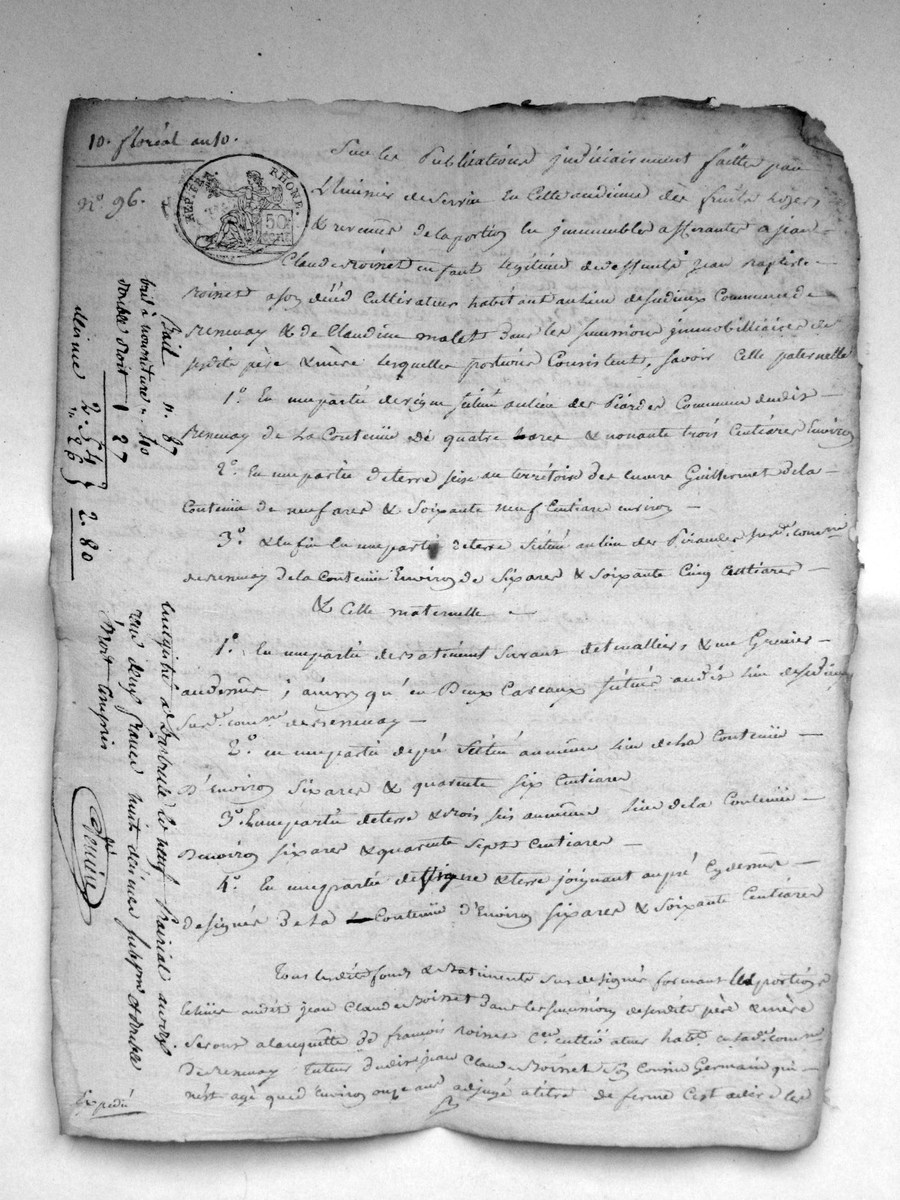 10. floréal an 10.
n° 96.
REP. FRA. RHONE.
50 CENT.
Sur les Publications judiciairement faittes par
L'huissier de Service En Cette audience des fruits loyers
& revenus de la portion des immeubles afferantes a jean
Claude Boinet enfant legitime de deffunts jean Baptiste
Boinet a son déced Cultivateur habitant au lieu de Commune de
& de Claudine malet Dans les successions immobilliaires des
susdits père & mère lesquelles portions Consistent, savoir Celle paternelle
1°. En une partie de vigne située au lieu des Commune dudit
de La Contenue De quatre ares & nonante trois Centiares Environ
2°. En une partie de terre sise au territoire des Guillermet de la
Contenue de neuf ares & Soixante neuf Centiare environ
3°. & Enfin En une partie de terre Située au lieu des
de la Contenue Environ de Six ares & Soixante Cinq Centiares
& Celle maternelle
1°. En une partie de Batiments Servant de & une Grenier
au dessus; ainsy qu'en Deux Caseaux situés audit lieu de
sus d. comne. de
2°. en une partie de pré Située au même lieu de La Contenue
D'environ Six ares & quarante six Centiares
3°. En une partie de terre & Bois sis au même lieu de la Contenue
D'environ six ares & quarante Sept Centiares
4°. En une partie de vigne & terre joignant au pré Cy dessus
designés De La Contenue d'Environ six ares & Soixante Centiares
Tous lesdits fonds & Batiments Sus designés formant les portions
audit jean Claude Boinet dans les successions desdits père & mère
Seront a la requette de françois Boinet Cen. cultivateur habt. en lad. comne
de Tuteur dudit jean Claude Boinet Son Cousin Germain qui
n'est agé que d'Environ onze ans adjugé a titre de ferme C'est adire les
Bail n. 87
bail à nourriture 40
double droit 1 27
2. 54
décime " 26
2. 80
Enregistré à le neuf Prairial an dix
reçu deux francs huit décimes subvon. et double
Droit Compris
Expédié